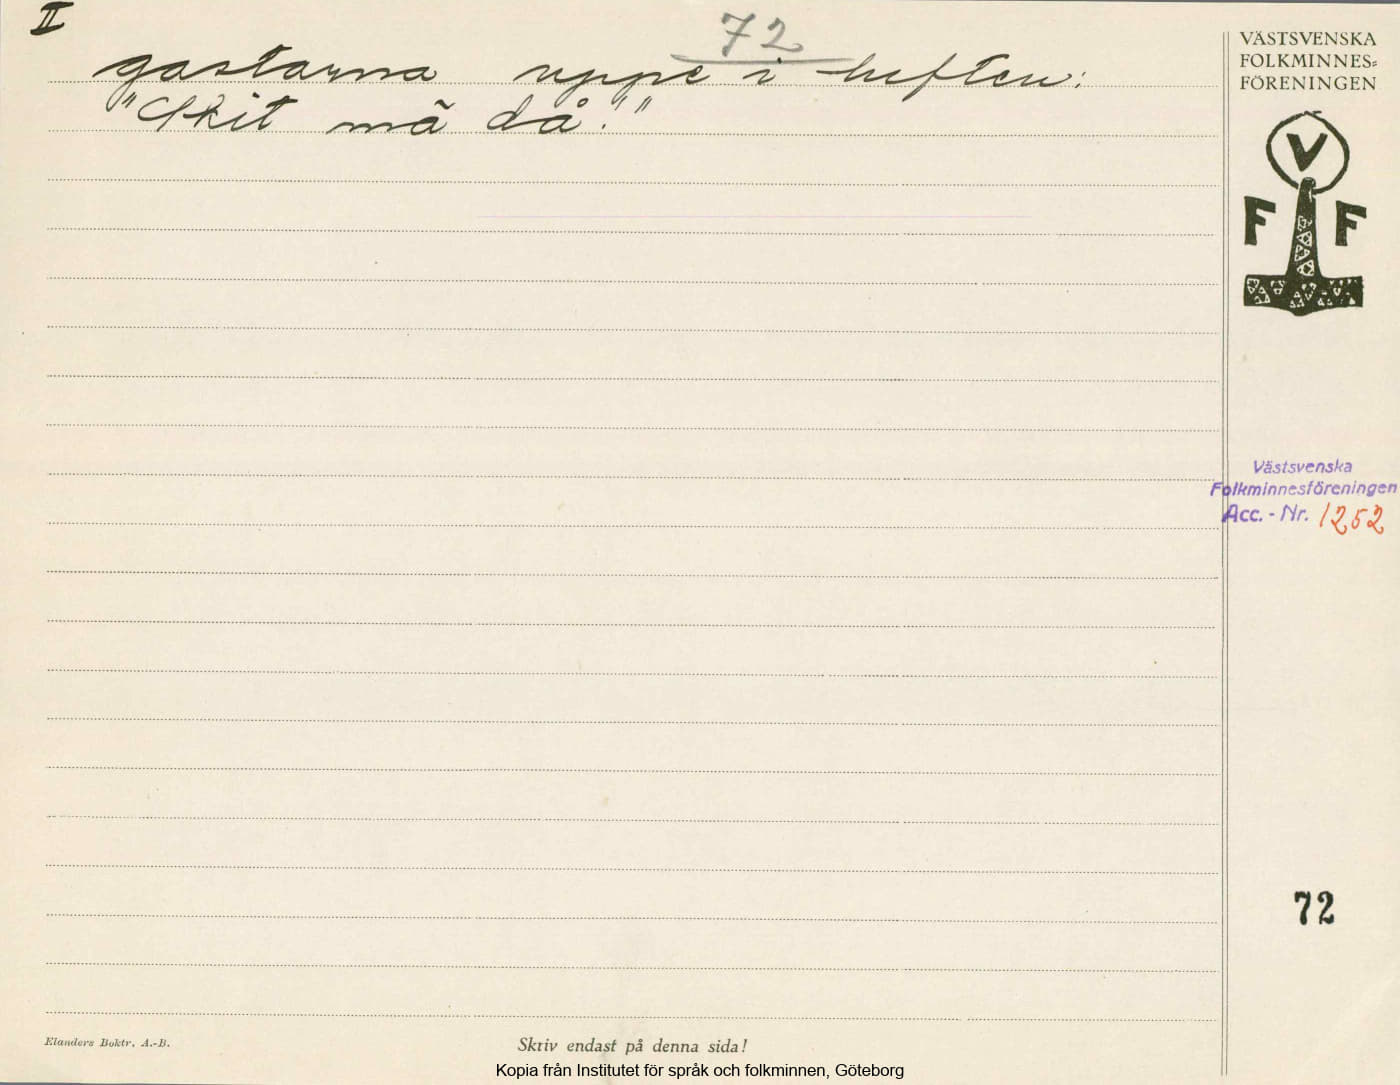 II
72
gastarna uppe i luften:
"Skit mä då!"
VÄSTSVENSKA
FOLKMINNES=
FÖRENINGEN
V
F F
Västsvenska
Folkminnesföreningen
Acc. - Nr. 1252
72
Elanders Boktr. A.-B.
Skriv endast på denna sida!
Kopia från Institutet för språk och folkminnen, Göteborg